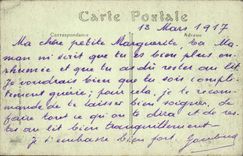 Carte Postale
Correspondance
Adresse
13 Mars 1917
Ma chère petite Marguerite, ta Ma-
man m'écrit que tu es bien plus en-
rhumée et que tu as dû rester au lit
Je voudrais bien que tu sois complè-
tement guérie; pour cela, je te recom-
mande de te laisser bien soigner, de
faire tout ce qu'on te dira et de res-
ter au lit bien tranquillement —
Je t'embrasse bien fort.